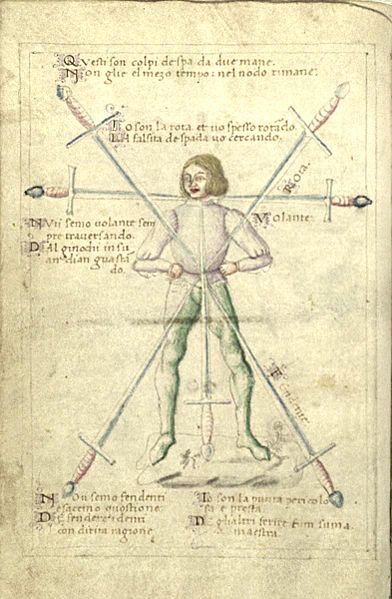 Questi son colpi de spa da due mane.
Non glie el mezo tempo: nel nodo rimane.
Io son la rota et uo spesso rotãdo.
La falsita de spada uo cercando.
Rota.
Nui semo volante sem
pre trauersando.
Dal ginochi in su
andian guastã
do.
Volante.
Fendente.
Noi semo fendenti
e facemo questione
De fender e denti
con dirita ragione
Io son la punta pericolo
sa e presta.
De glialtri ferire suma
maestra.